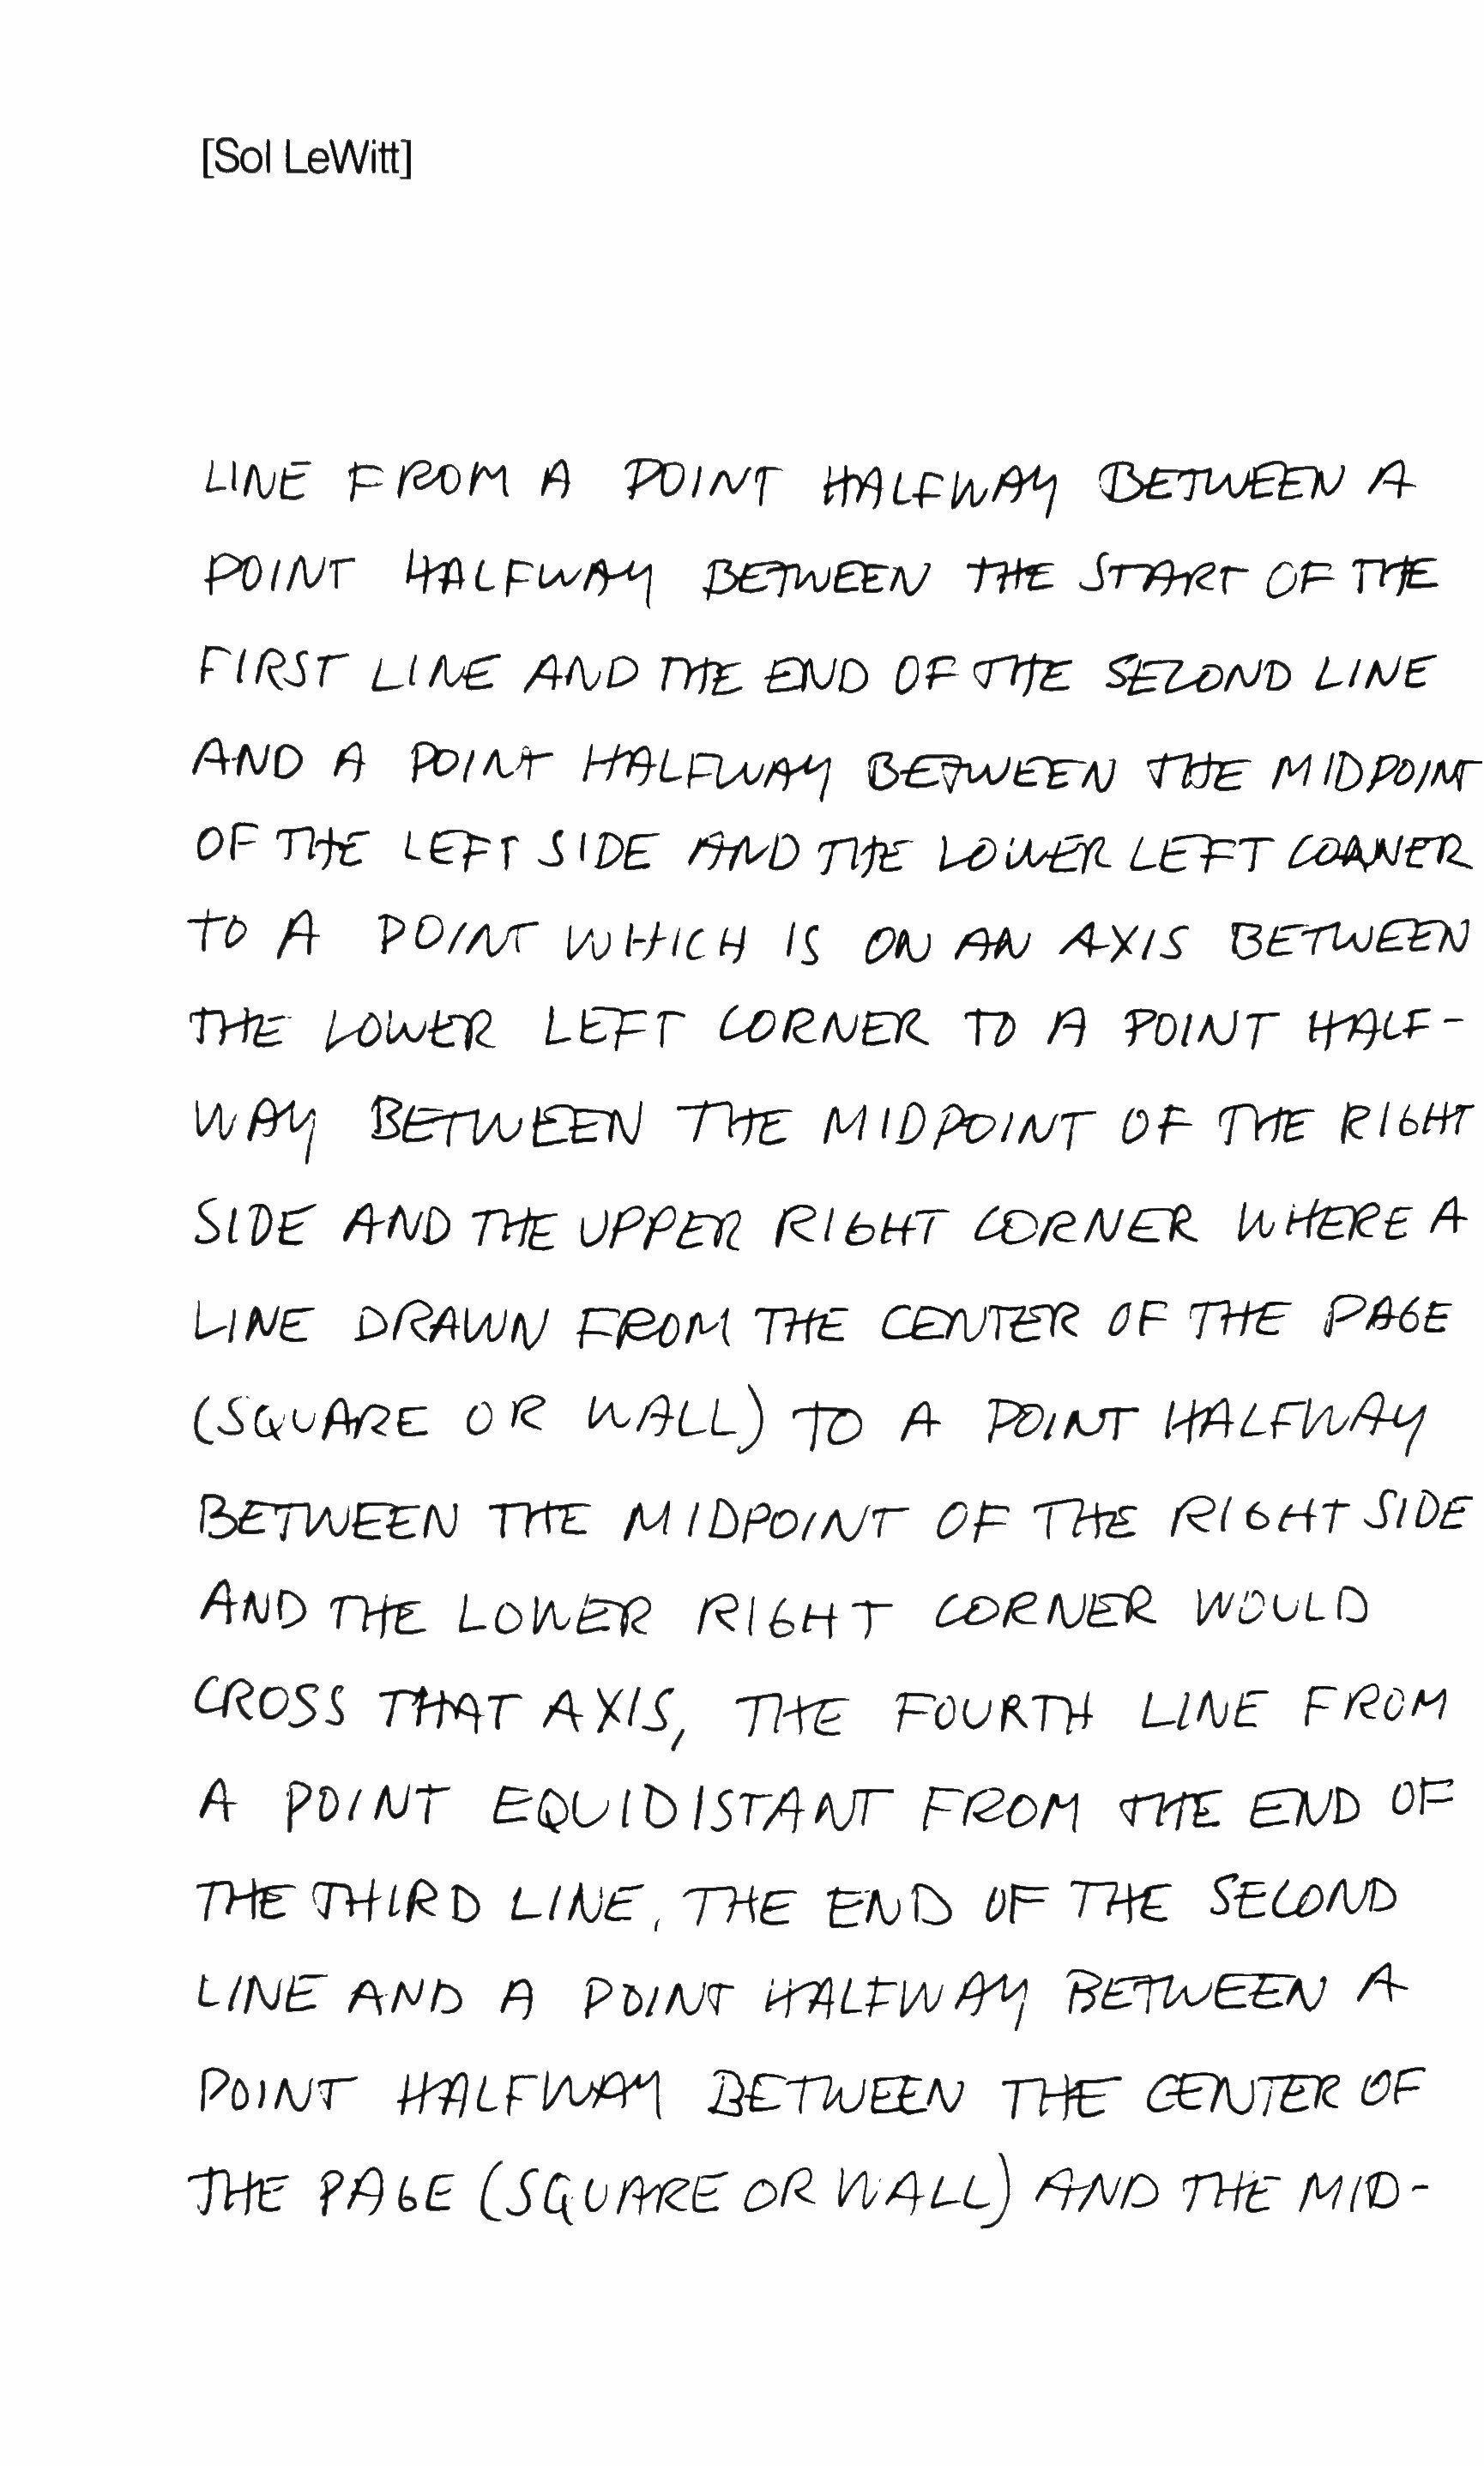 [Sol LeWitt]
LINE FROM A POINT HALFWAY BETWEEN A
POINT HALFWAY BETWEEN THE START OF THE
FIRST LINE AND THE END OF THE SECOND LINE
AND A POINT HALFWAY BETWEEN THE MIDPOINT
OF THE LEFT SIDE AND THE LOWER LEFT CORNER
TO A POINT WHICH IS ON AN AXIS BETWEEN
THE LOWER LEFT CORNER TO A POINT HALF-
WAY BETWEEN THE MIDPOINT OF THE RIGHT
SIDE AND THE UPPER RIGHT CORNER WHERE A
LINE DRAWN FROM THE CENTER OF THE PAGE
(SQUARE OR WALL) TO A POINT HALFWAY
BETWEEN THE MIDPOINT OF THE RIGHT SIDE
AND THE LOWER RIGHT CORNER WOULD
CROSS THAT AXIS, THE FOURTH LINE FROM
A POINT EQUIDISTANT FROM THE END OF
THE THIRD LINE, THE END OF THE SECOND
LINE AND A POINT HALFWAY BETWEEN A
POINT HALFWAY BETWEEN THE CENTER OF
THE PAGE (SQUARE OR WALL) AND THE MID-